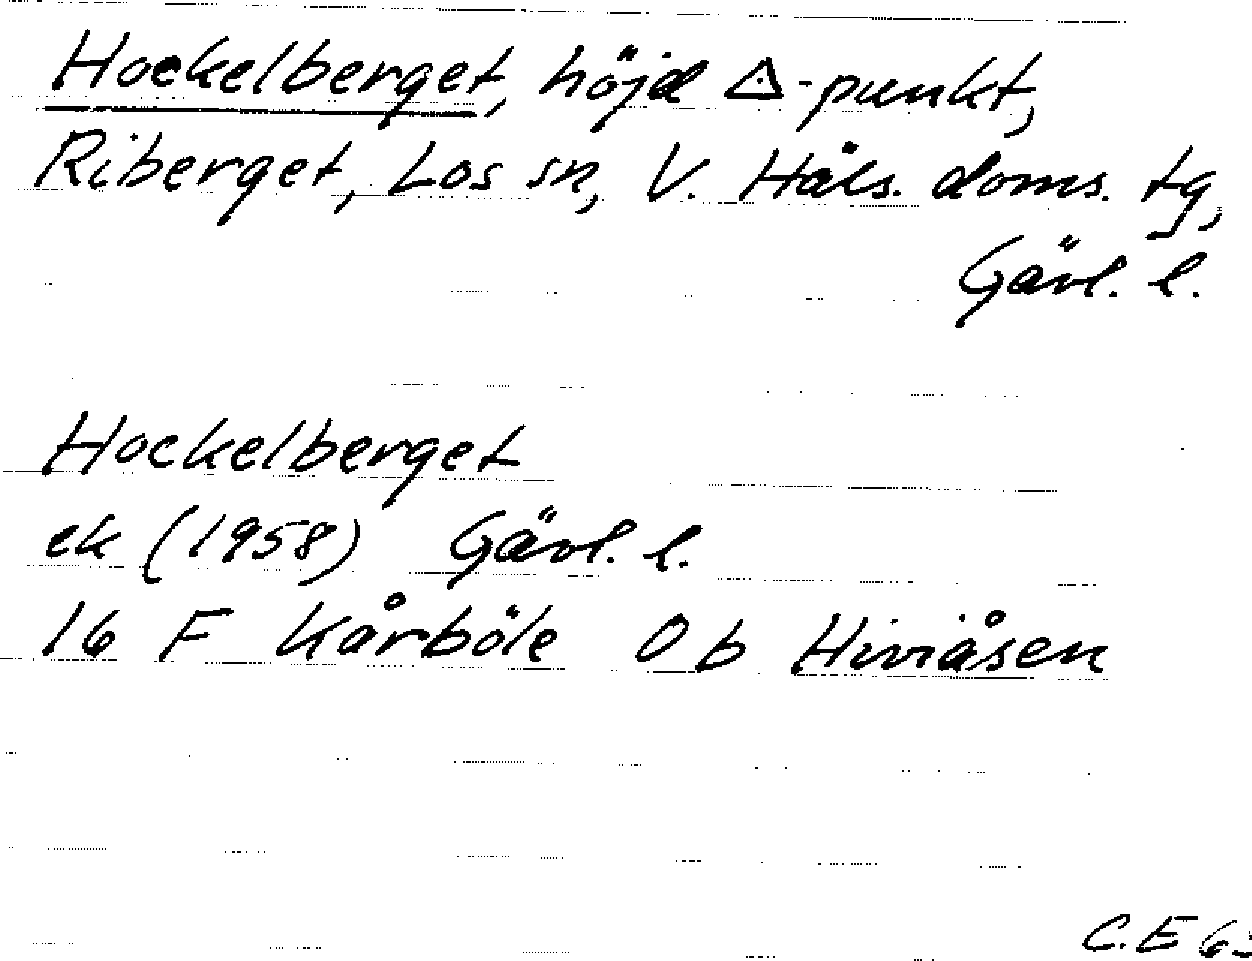 Hockelberget, höjd △-punkt,
Riberget, Los sn, V. Häls. doms. tg,
Gävl. l.
Hockelberget
ek (1958) Gävl. l.
16 F Kårböle 0 b Hiviåsen
C.E 63